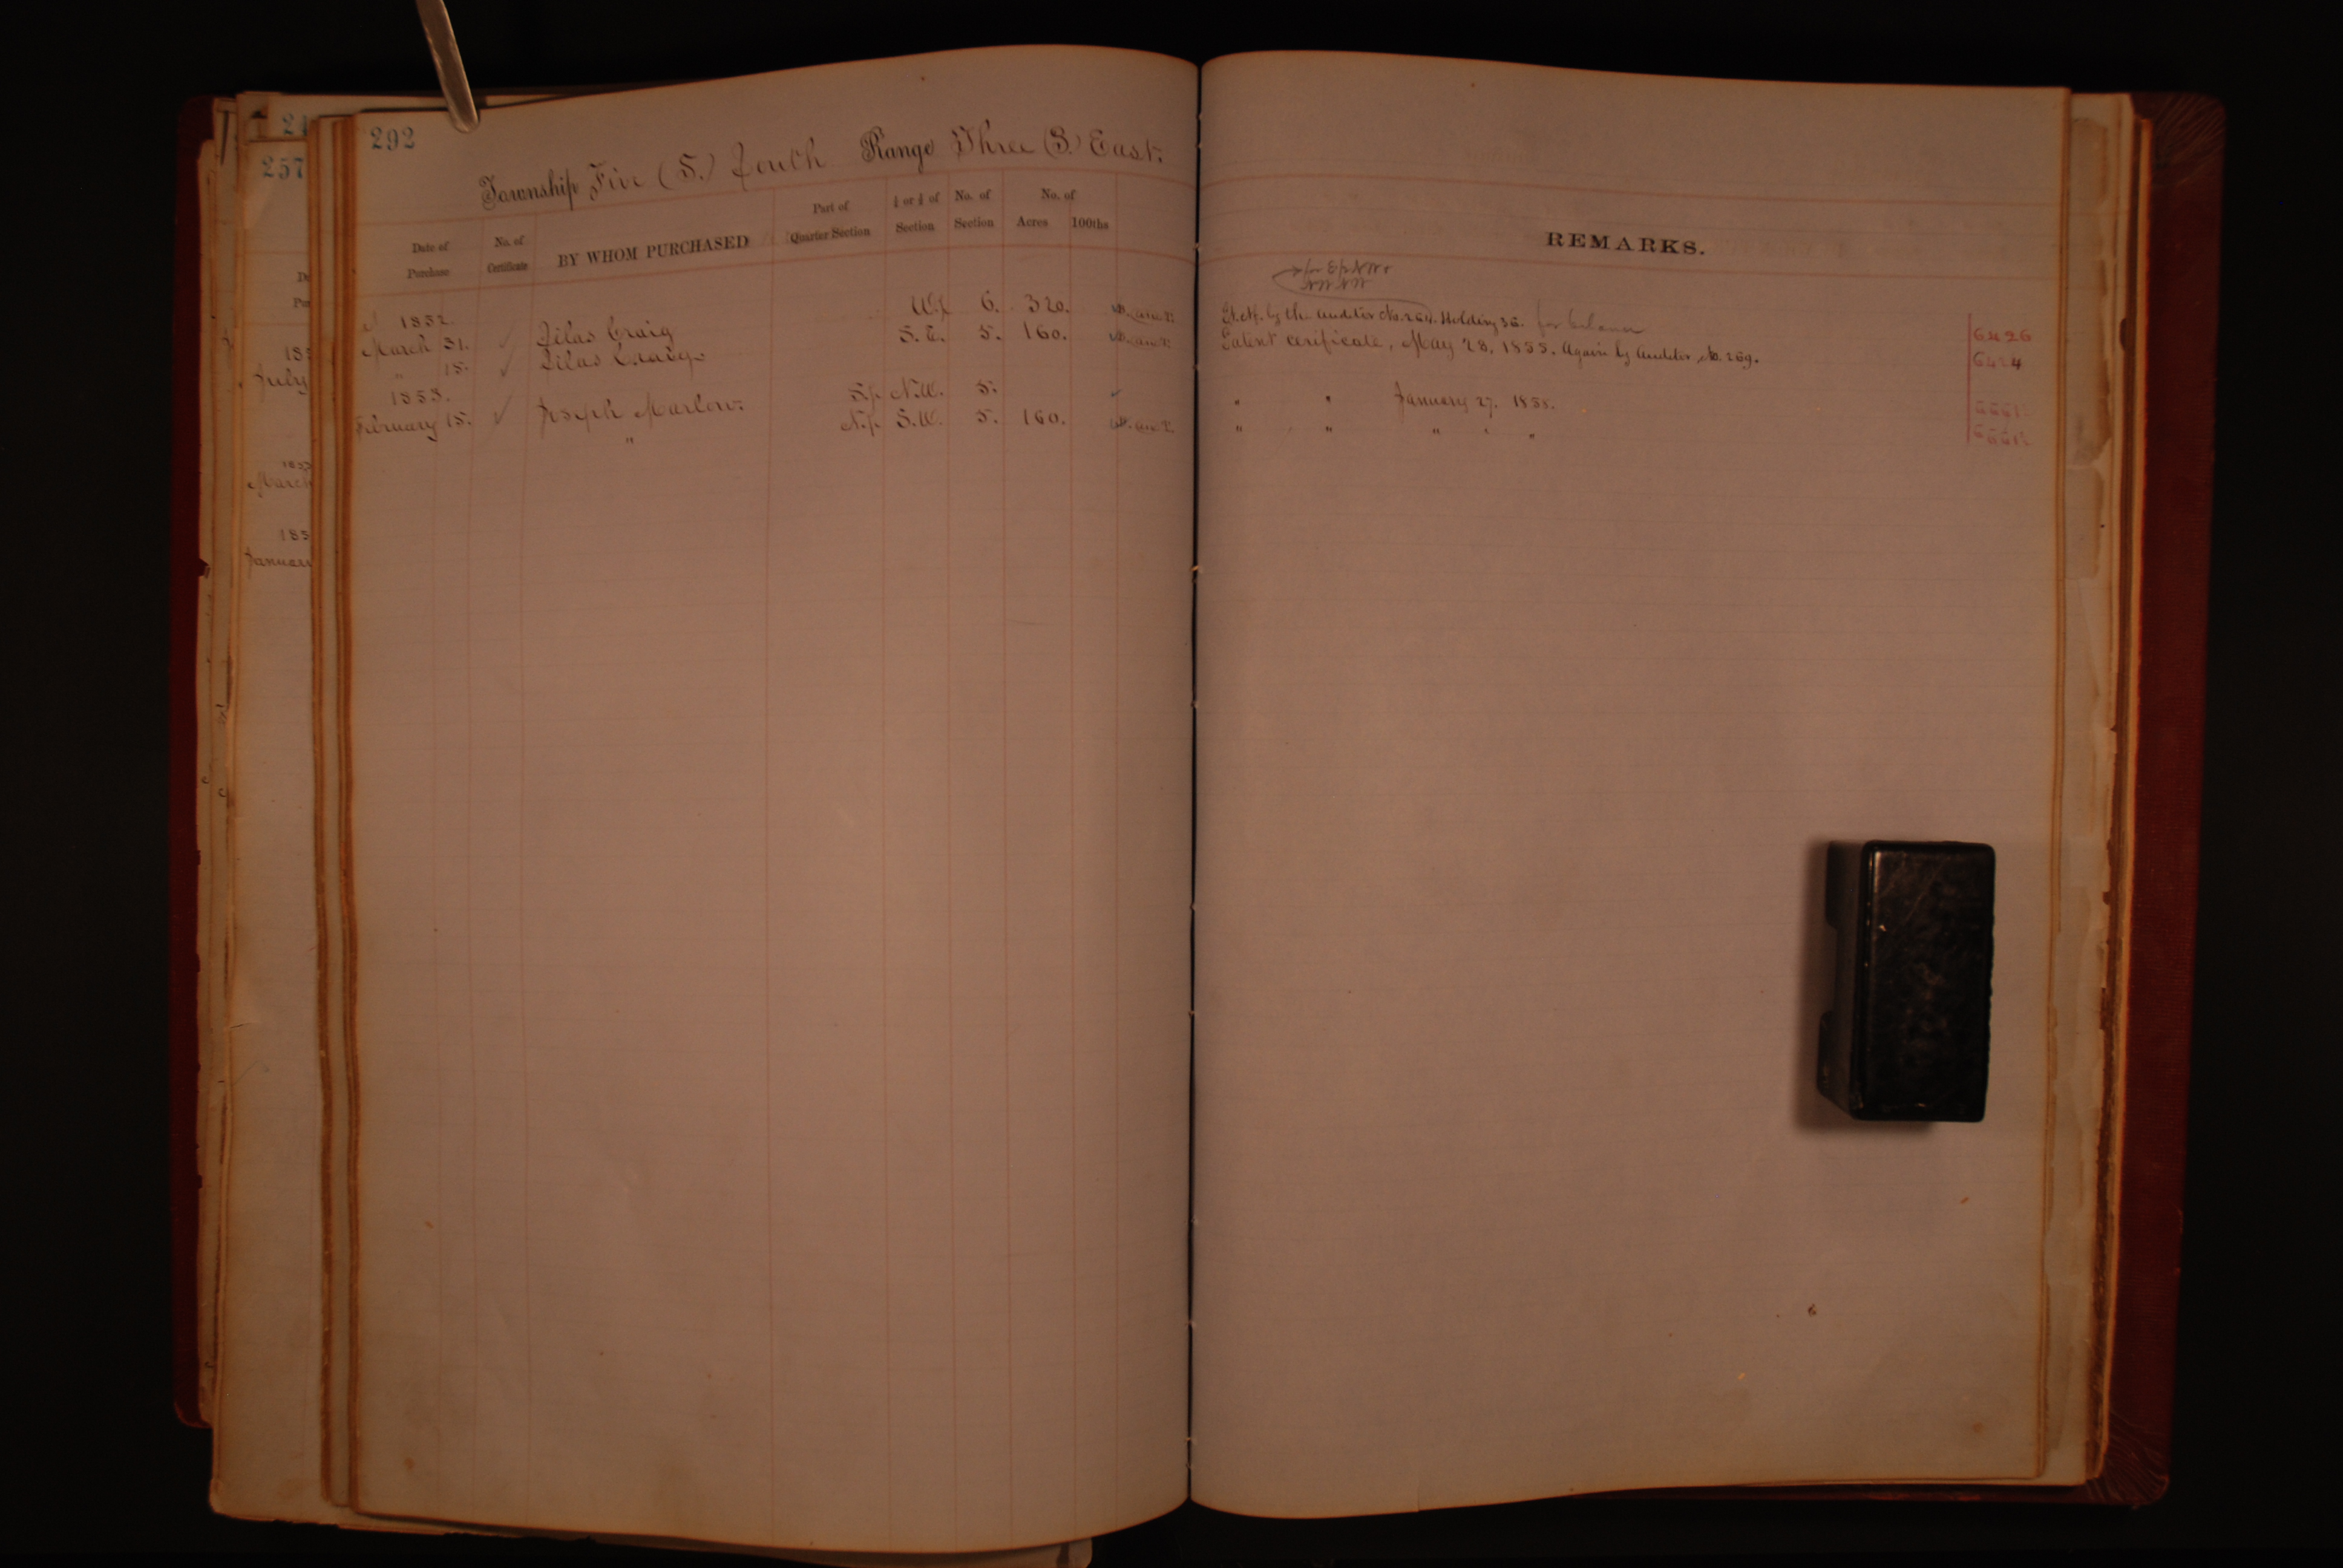 292
24
257
Township Five (5.) South Range Three (3.) East.
Date of Purchase
No. of Certificate
BY WHOM PURCHASED
Part of Quarter Section
½ or ¼ of Section
No. of Section
No. of
Acres 100ths
REMARKS.
1852.
March 31. ✓ Silas Craig W.½ 6. 320. by the Auditor No. 264. Holding 36. for balance 6426
" 15. ✓ Silas Craig S.E. 5. 160. Patent cerificate, May 28, 1855. Again by Auditor, No. 269. 6424
1853.
February 15. ✓ Joseph Marlow. S.½ N.W. 5. " " January 27. 1858.
" N.½ S.W. 5. 160. " " " " "
July
March
185
January